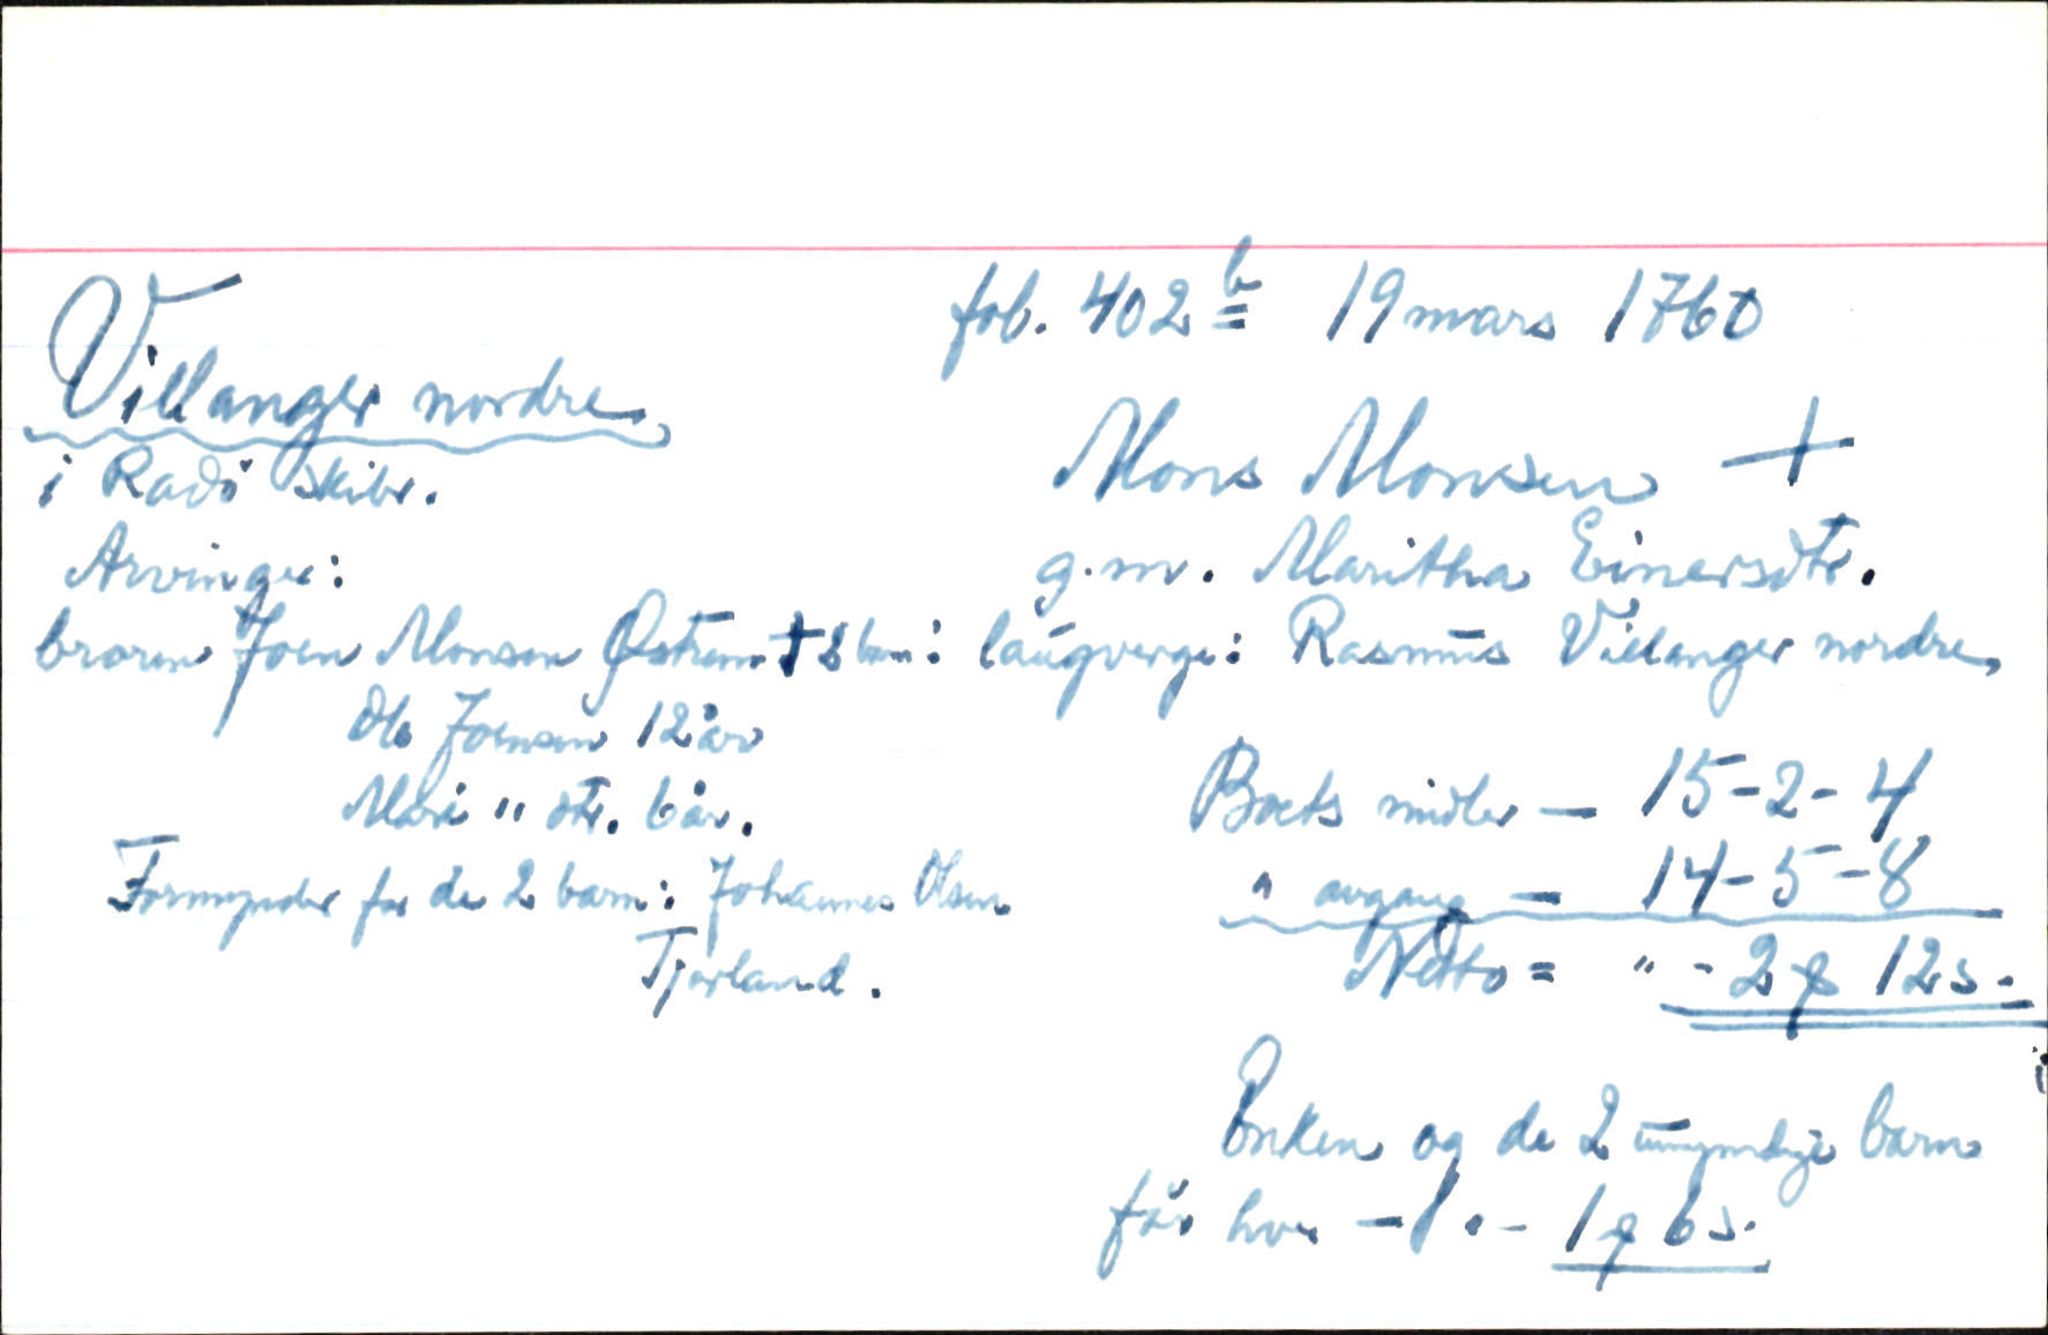 fol. 402 b 19 mars 1760
Villanger nordre
i Radö skibr.
Mons Monsen +
g.m. Maritha Einersdtr.
laugverge: Rasmus Villanger nordre,
Arvinger:
broren Joen Monsen Østrem † 2 barn:
Ole Joensen 12 år
Mari " dtr. 6 år.
Formynder for de 2 barn: Johannes Olsen
Tjorland.
Boets midler — 15-2-4
" avgang — 14-5-8
Netto = " - 2 ꝗ 12 s.
Enken og de 2 umyndige barn
får hver - " - 1 ꝗ 6 s.